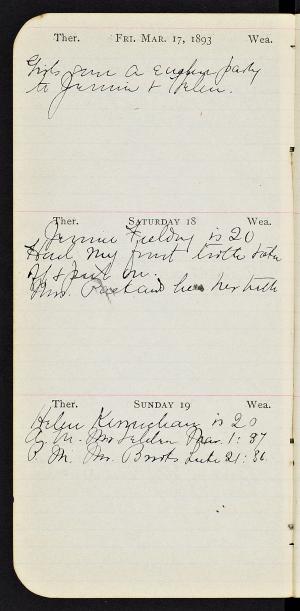 Ther. FRI. MAR. 17, 1893 Wea.
Girls gave a euchre party
to Jennie & Helen.
Ther. SATURDAY 18 Wea.
Jennie Fielding is 20
Had my front tooth taken
off & put on.
Mrs. Packard has her teeth
Ther. SUNDAY 19 Wea.
Helen Kernighan is 20
A. M. Mr Selden 1: 37
P. M. Mr. Brooks Luke 21: 36